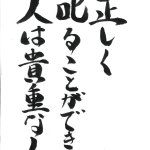 正しく
叱ることができ
人は貴重な人